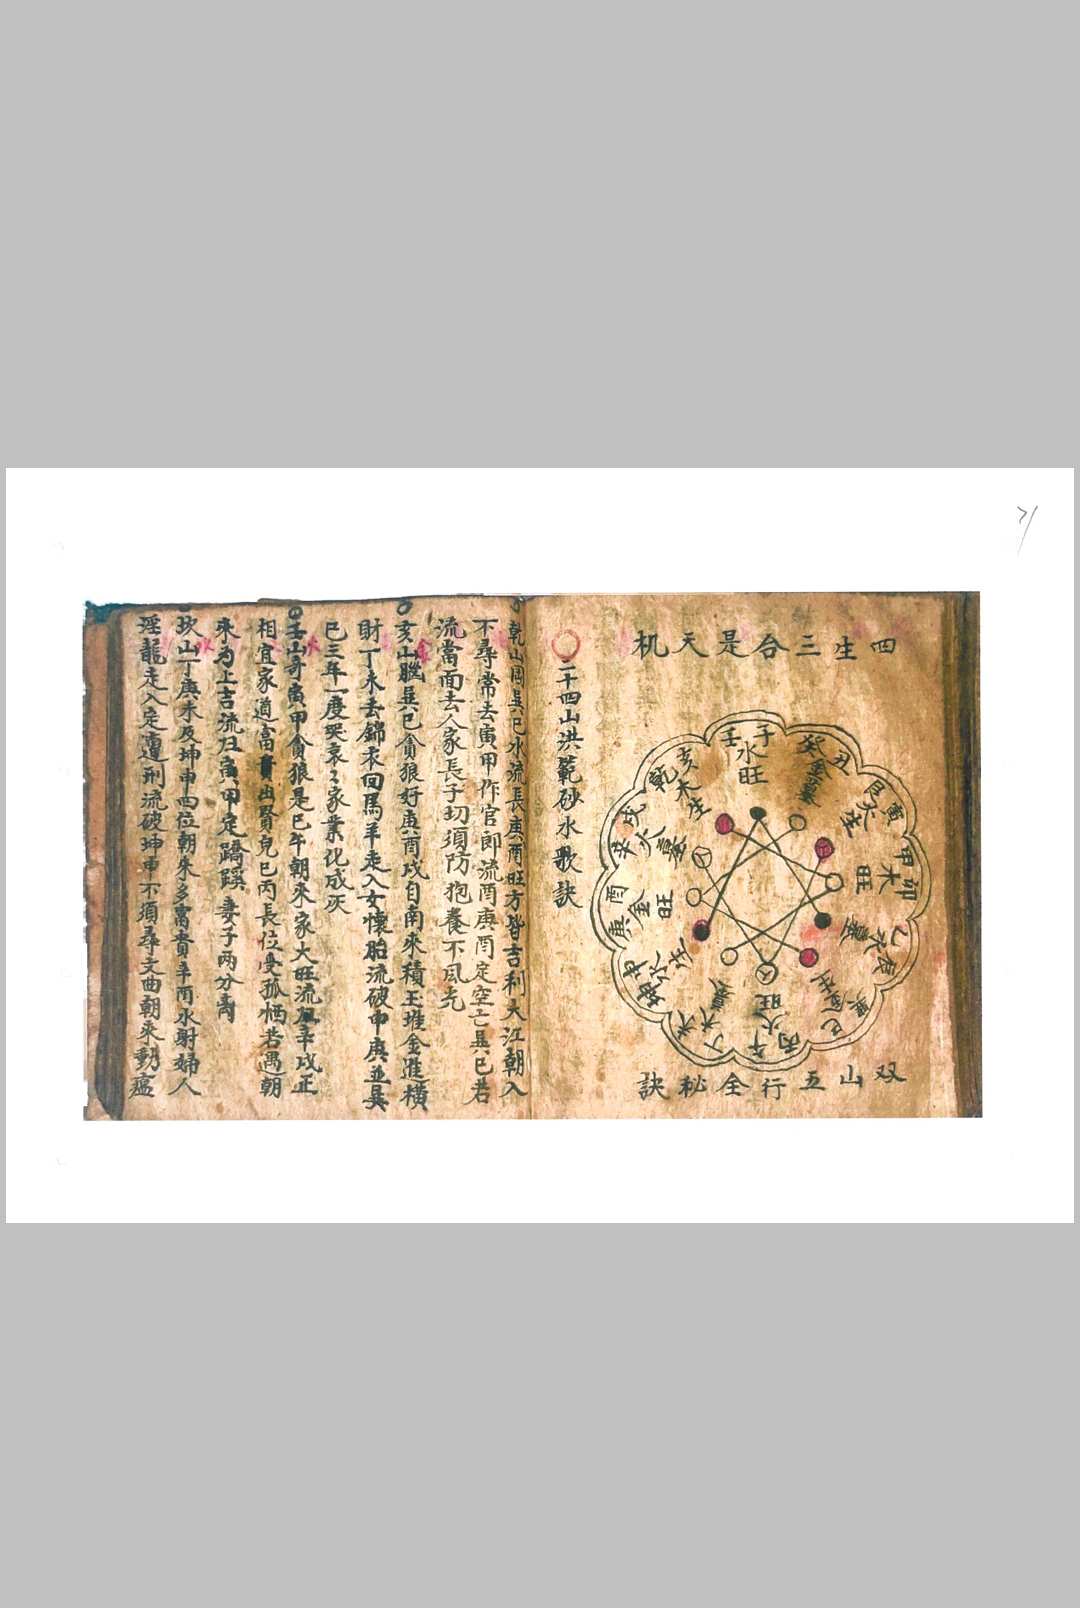 四生三合是天机
子壬
水
旺
癸丑
金
墓
艮寅
火
生
甲卯
木
旺
乙辰
水
墓
巽巳
金
生
丙午
火
旺
丁未
木
墓
坤申
水
生
庚酉
金
旺
辛戌
火
墓
乾亥
木
生
双山五行全秘訣
二十四山洪範砂水歌訣
乾山岡巽巳水流長庚酉旺方皆吉利大江朝入
不尋常去寅甲作官郎流酉庚酉定空亡巽巳若
流當面去人家長子切須防抱養不風光
亥山騰巽巳貪狼好庚酉戌自南來積玉堆金進橫
財丁未去錦衣回馬羊走入女懷胎流破甲庚並巽
巳三年一度哭哀々家業化成灰
壬山奇寅甲貪狼是巳午朝來家大旺流歸辛戌正
相宜家道富貴出賢兒巳丙長位憂孤恓若遇朝
來为上吉流归寅甲定蹻蹊妻子兩分离
坎山丁庚未及坤申四位朝來多富貴辛酉水射婦人
淫龍走入定遭刑流破坤申不須尋文曲朝來動瘟